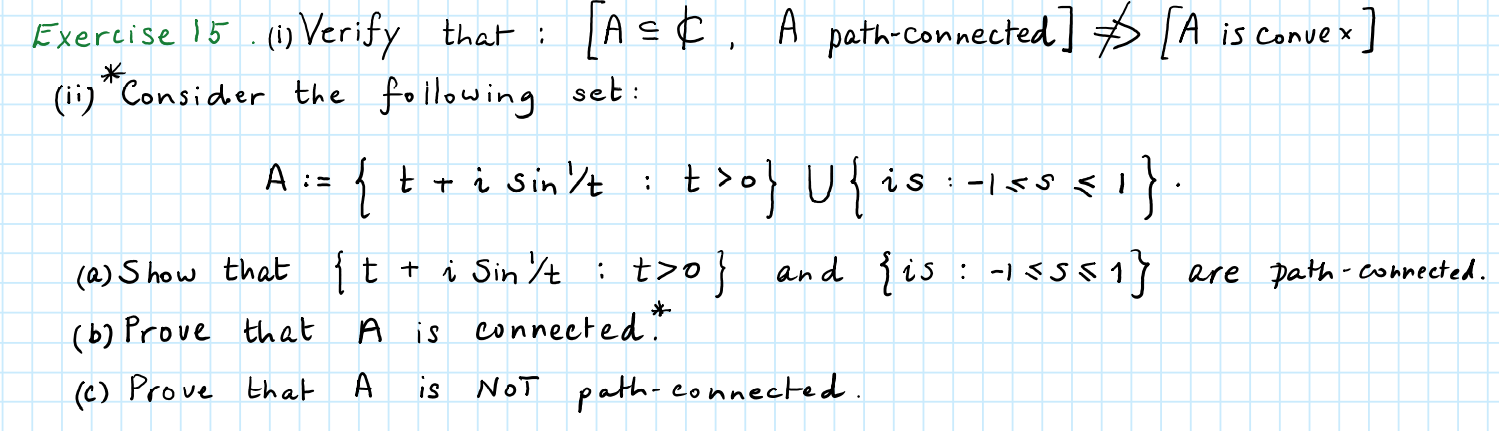 Exercise 15 . (i) Verify that : [A ⊆ ℂ , A path-connected] ⇏ [A is convex]
(ii)* Consider the following set:
A := { t + i sin 1/t : t > 0 } ∪ { is : -1 ≤ s ≤ 1 } .
(a) Show that { t + i Sin 1/t : t > 0 } and { is : -1 ≤ s ≤ 1 } are path-connected.
(b) Prove that A is connected.*
(c) Prove that A is NOT path-connected.